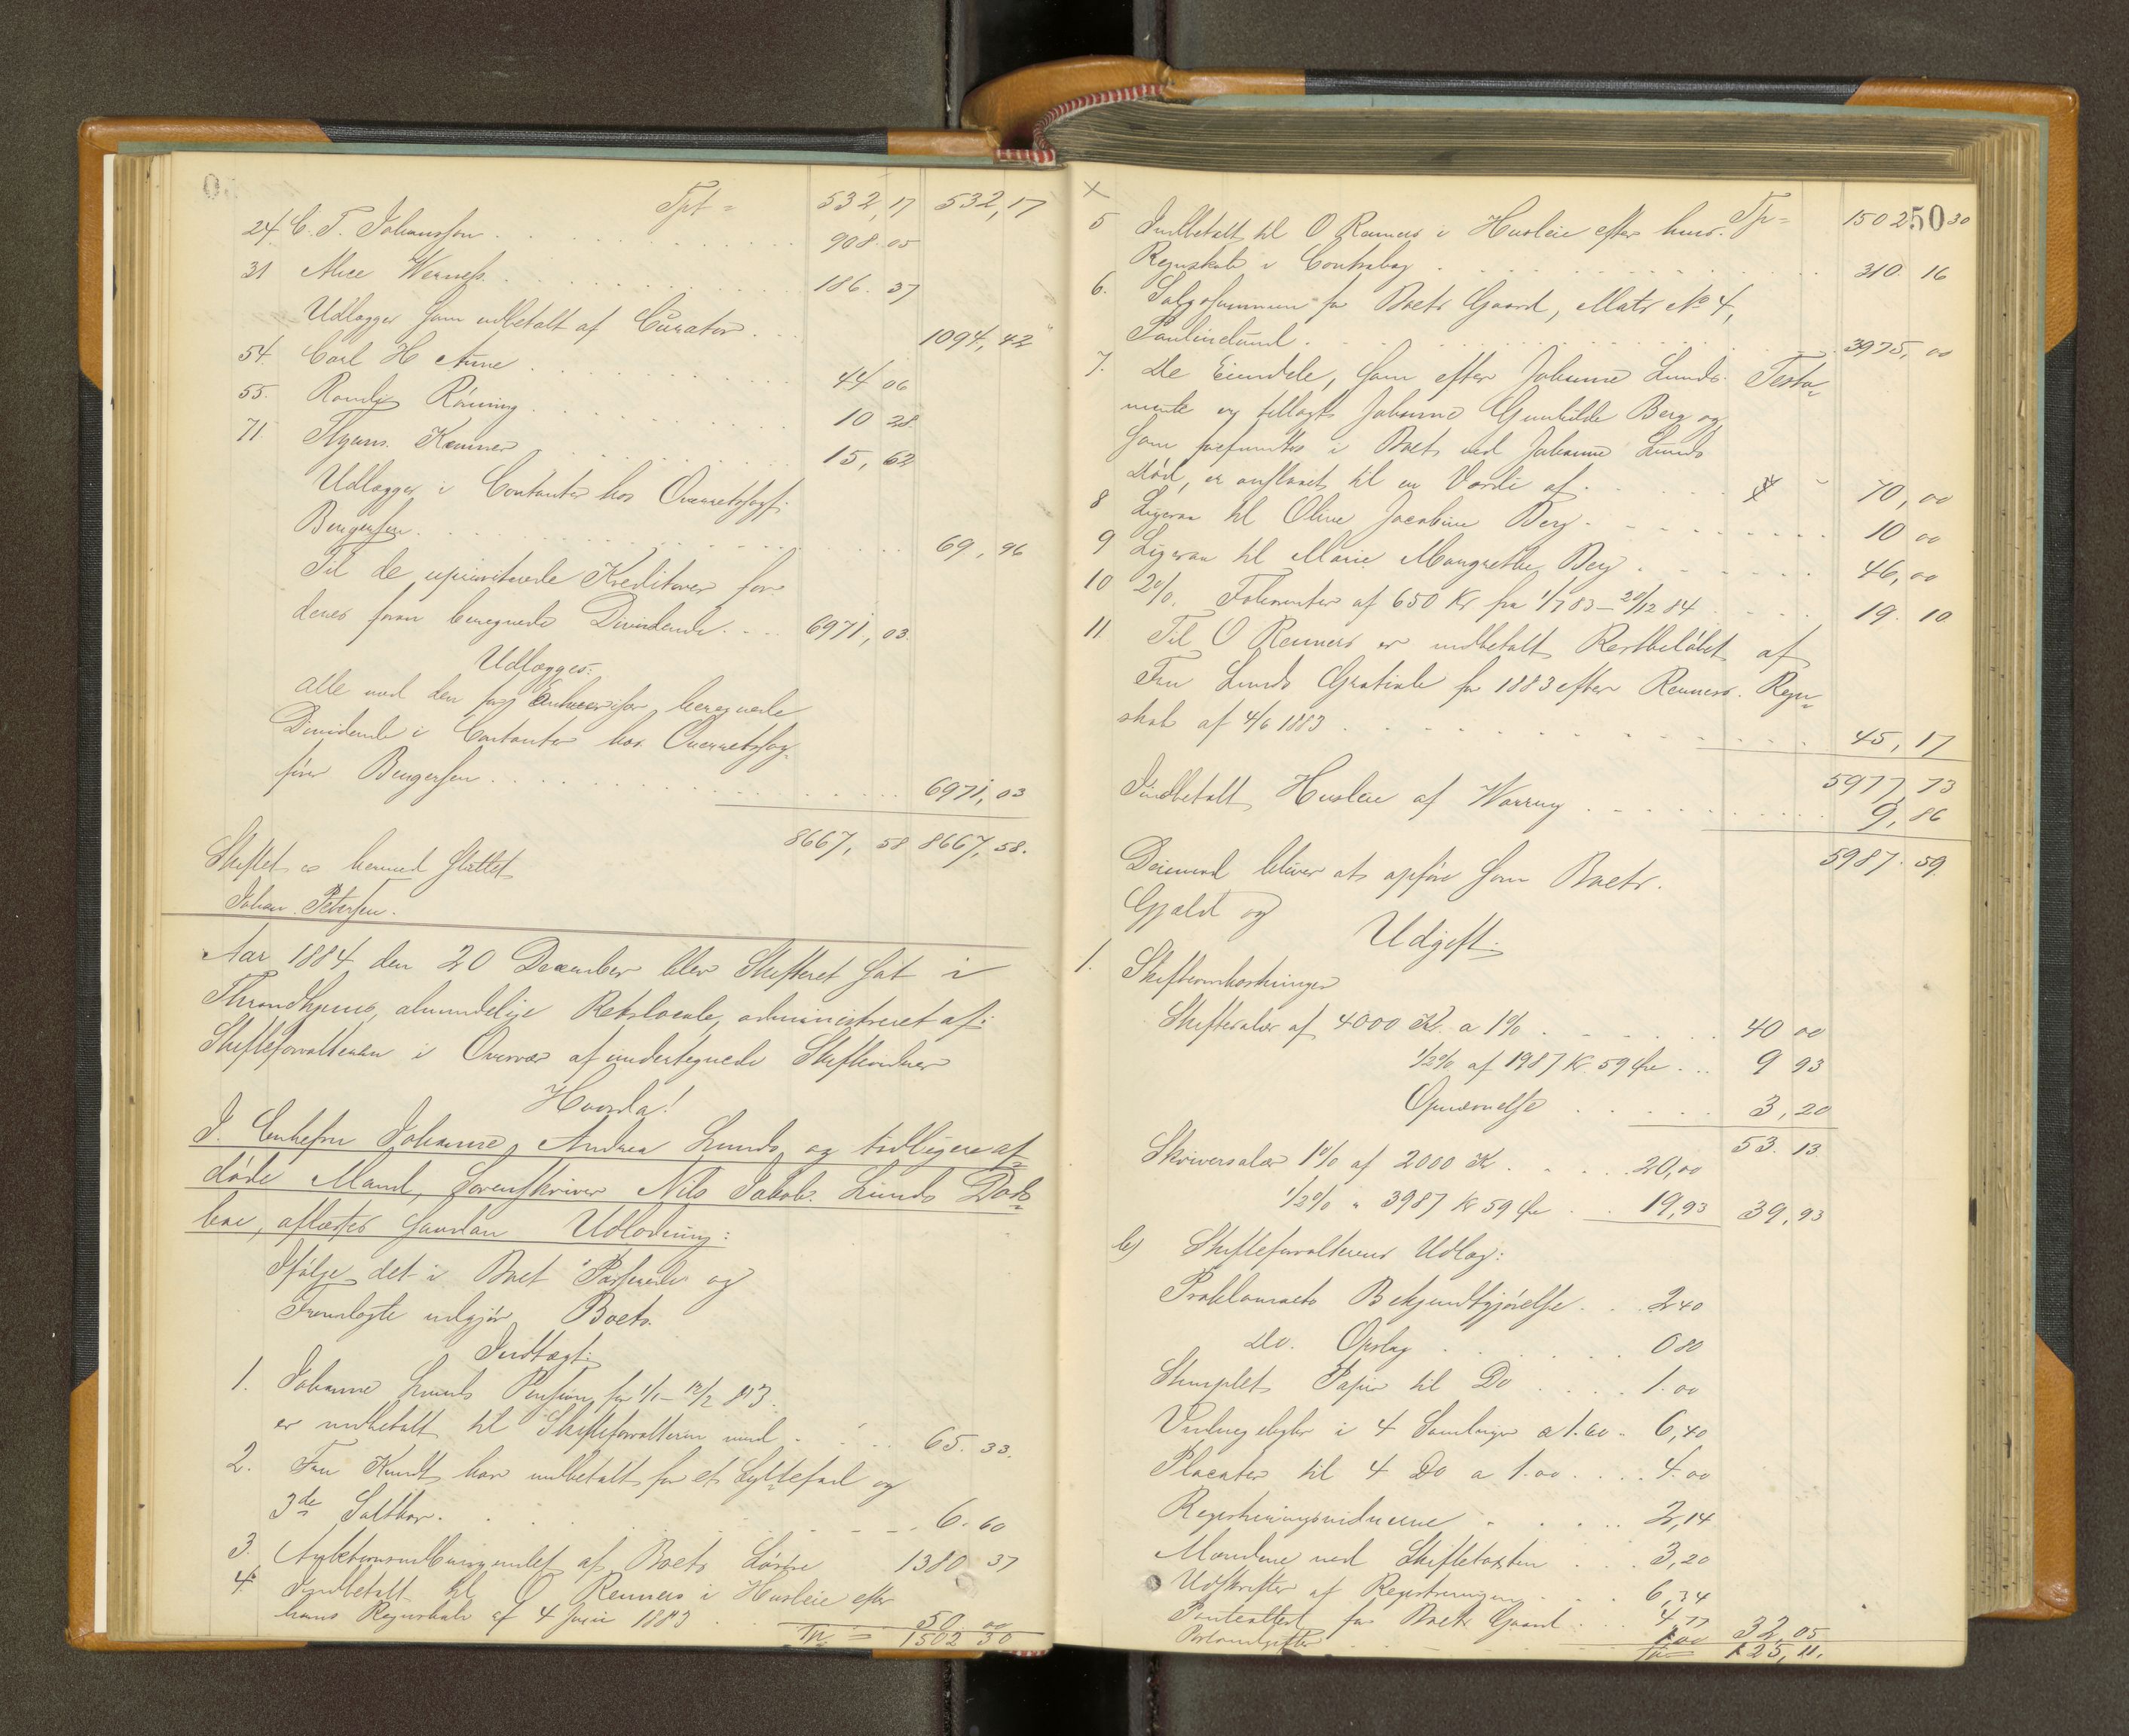 Tpt = 532,17 532,17
24 C. T. Johanssen . . . 908.05
31 Alice Werness . . . 186.37
Udlægges som udbetalt af Curator . . 1094,42
54. Carl H Aune . . . 44 06
55. Randi Röning . . . 10 28.
71. Thjems. Kemner . . . 15,62
Udlægges i Contanter hos Overretssagf.
Bengersen . . . 69,96
Til de upriviterede Kreditorer for
deres foran beregnede Dividende . . . 6971,03.
Udlægges:
alle med den for Enhver især beregnede
Dividende i Contanter hos Overretssag-
fører Bengersen . . . 6971,03
8667,58 8667,58.
Skiftet er hermed sluttet
Johan Petersen.
Aar 1884 den 20 December blev Skifteret sat i
Throndhjems almindelige Retslocale, administreret af
Skifteforvalteren i Overvær af undertegnede Skiftevidner
Hvorda!
I Enkefru Johanne Andrea Lunds og tidligere af-
døde Mand, Sorenskriver Nils Jakob Lunds Døds-
bo, afluttes saadan Udlodning:
Ifølge det i Boet Passerede og
Fremlagte udgjør Boets
Indtægt:
1. Johanne Lunds Pension fra 1/1 - 12/2 83.
er indbetalt til Skifteforvalteren med . . . 65.33.
2. Fru Kundt har indbetalt for et Syltefad og
3de Saltkar . . . 6.60
3. Auktionsudbringendet af Boets Løsøre 1380.37
4. Indbetalt til O Renners i Husleie efter
hans Regnskab af 4 Juni 1883 . . 50.00
Tr = 1502 30
x
Tp = 1502 30
50
5 Indbetalt til O Renners i Husleie efter hans
Regnskab i Contrabog . . . 310.16
6. Salgssummen for Boets Gaard, Matr No 4,
Paulinelund . . . 3975,00
7. De Eiendele, som efter Johanne Lunds Testa-
mente er tillagt Johanne Gunhilde Berg og
som forefandtes i Boet ved Johanne Lunds
død, er anslaaet til en Værdi af . . . 70,00
8 Ligesaa til Oline Jacobine Berg . . . 10 00
9 Ligesaa til Marie Margrethe Berg . . . 46,00
10 2%. Foliorenter af 650 Kr fra 1/7 83 - 20/12 84 . . . 19.10
11. Til O Renners er indbetalt Restbeløbet af
Fru Lunds Gratiale for 1883 efter Renners. Regn-
skab af 4/6 1883 . . . 45,17
5977,73
Indbetalt Husleie af Warrny . . . 9,86
5987.59.
Derimod bliver at opføre som Boets
Gjæld og
Udgift.
1. Skifteomkostninger
Skiftesalær af 4000 Kr. a 1% . . . 40 00
1/2% af 1987 Kr. 59 Øre . . . 9 93
Opnævnelse . . . 3,20
53.13
Skriversalær 1% af 2000 Kr . . . 20,00
1/2% " 3987 Kr 59 Øre . . 19,93 39,93
b) Skifteforvalterens Udlæg:
Proklamaets Bekjendtgjørelse . . . 2 40
do. Opslag . . . 0 80
Stemplet Papir til Do . . . 1.00
i 4 Samlinger a 1.60 . 6,40
Placater til 4 Do a 1.00 . . . 4.00
Registreringsvidnerne . . . 2,14
Mændene ved Skiftetaxten . . . 3,20
Udskrifter af Registreringen . . . 6,34
Panteattest for Boets Gaard . . . 4,77
Portoudgifter . . . 1 00 32,05
Tr = 125,11.